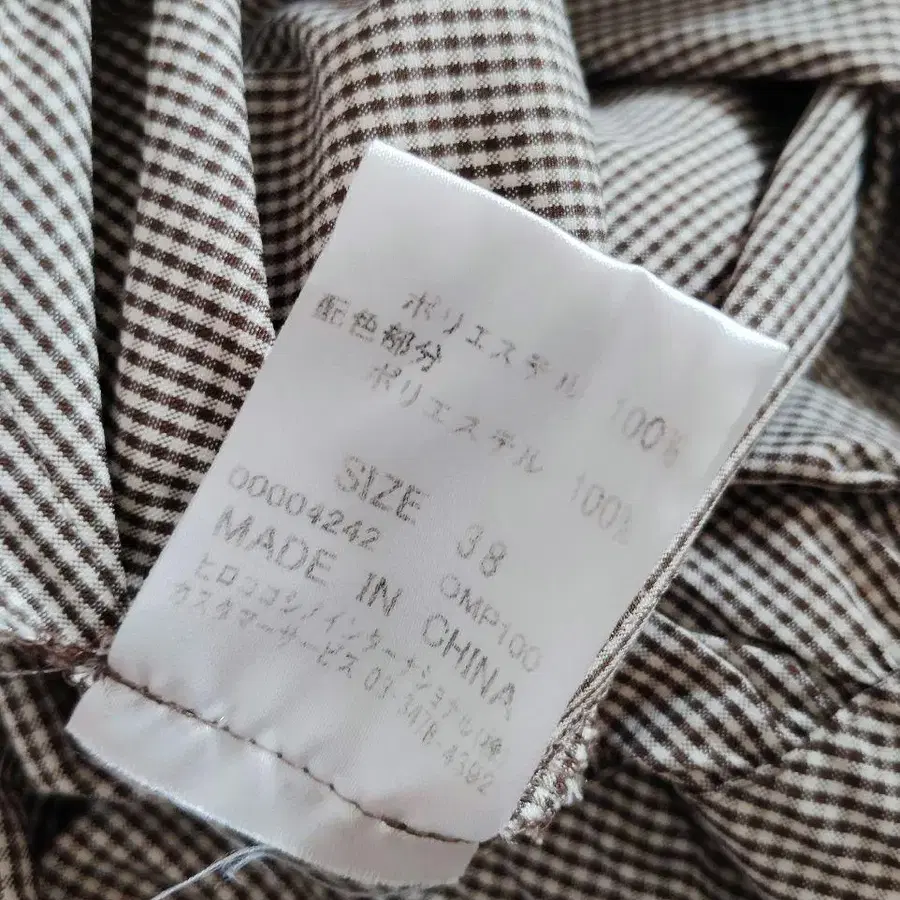 ポリエステル 100%
配色部分
ポリエステル 100%
SIZE 38
00004242 OMP100
MADE IN CHINA
ヒロココシノインターナショナル(株)
カスタマーサービス 03-3478-4392